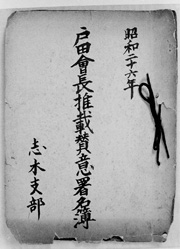 昭和二十六年
戸田會長推載賛意署名簿
志木支部